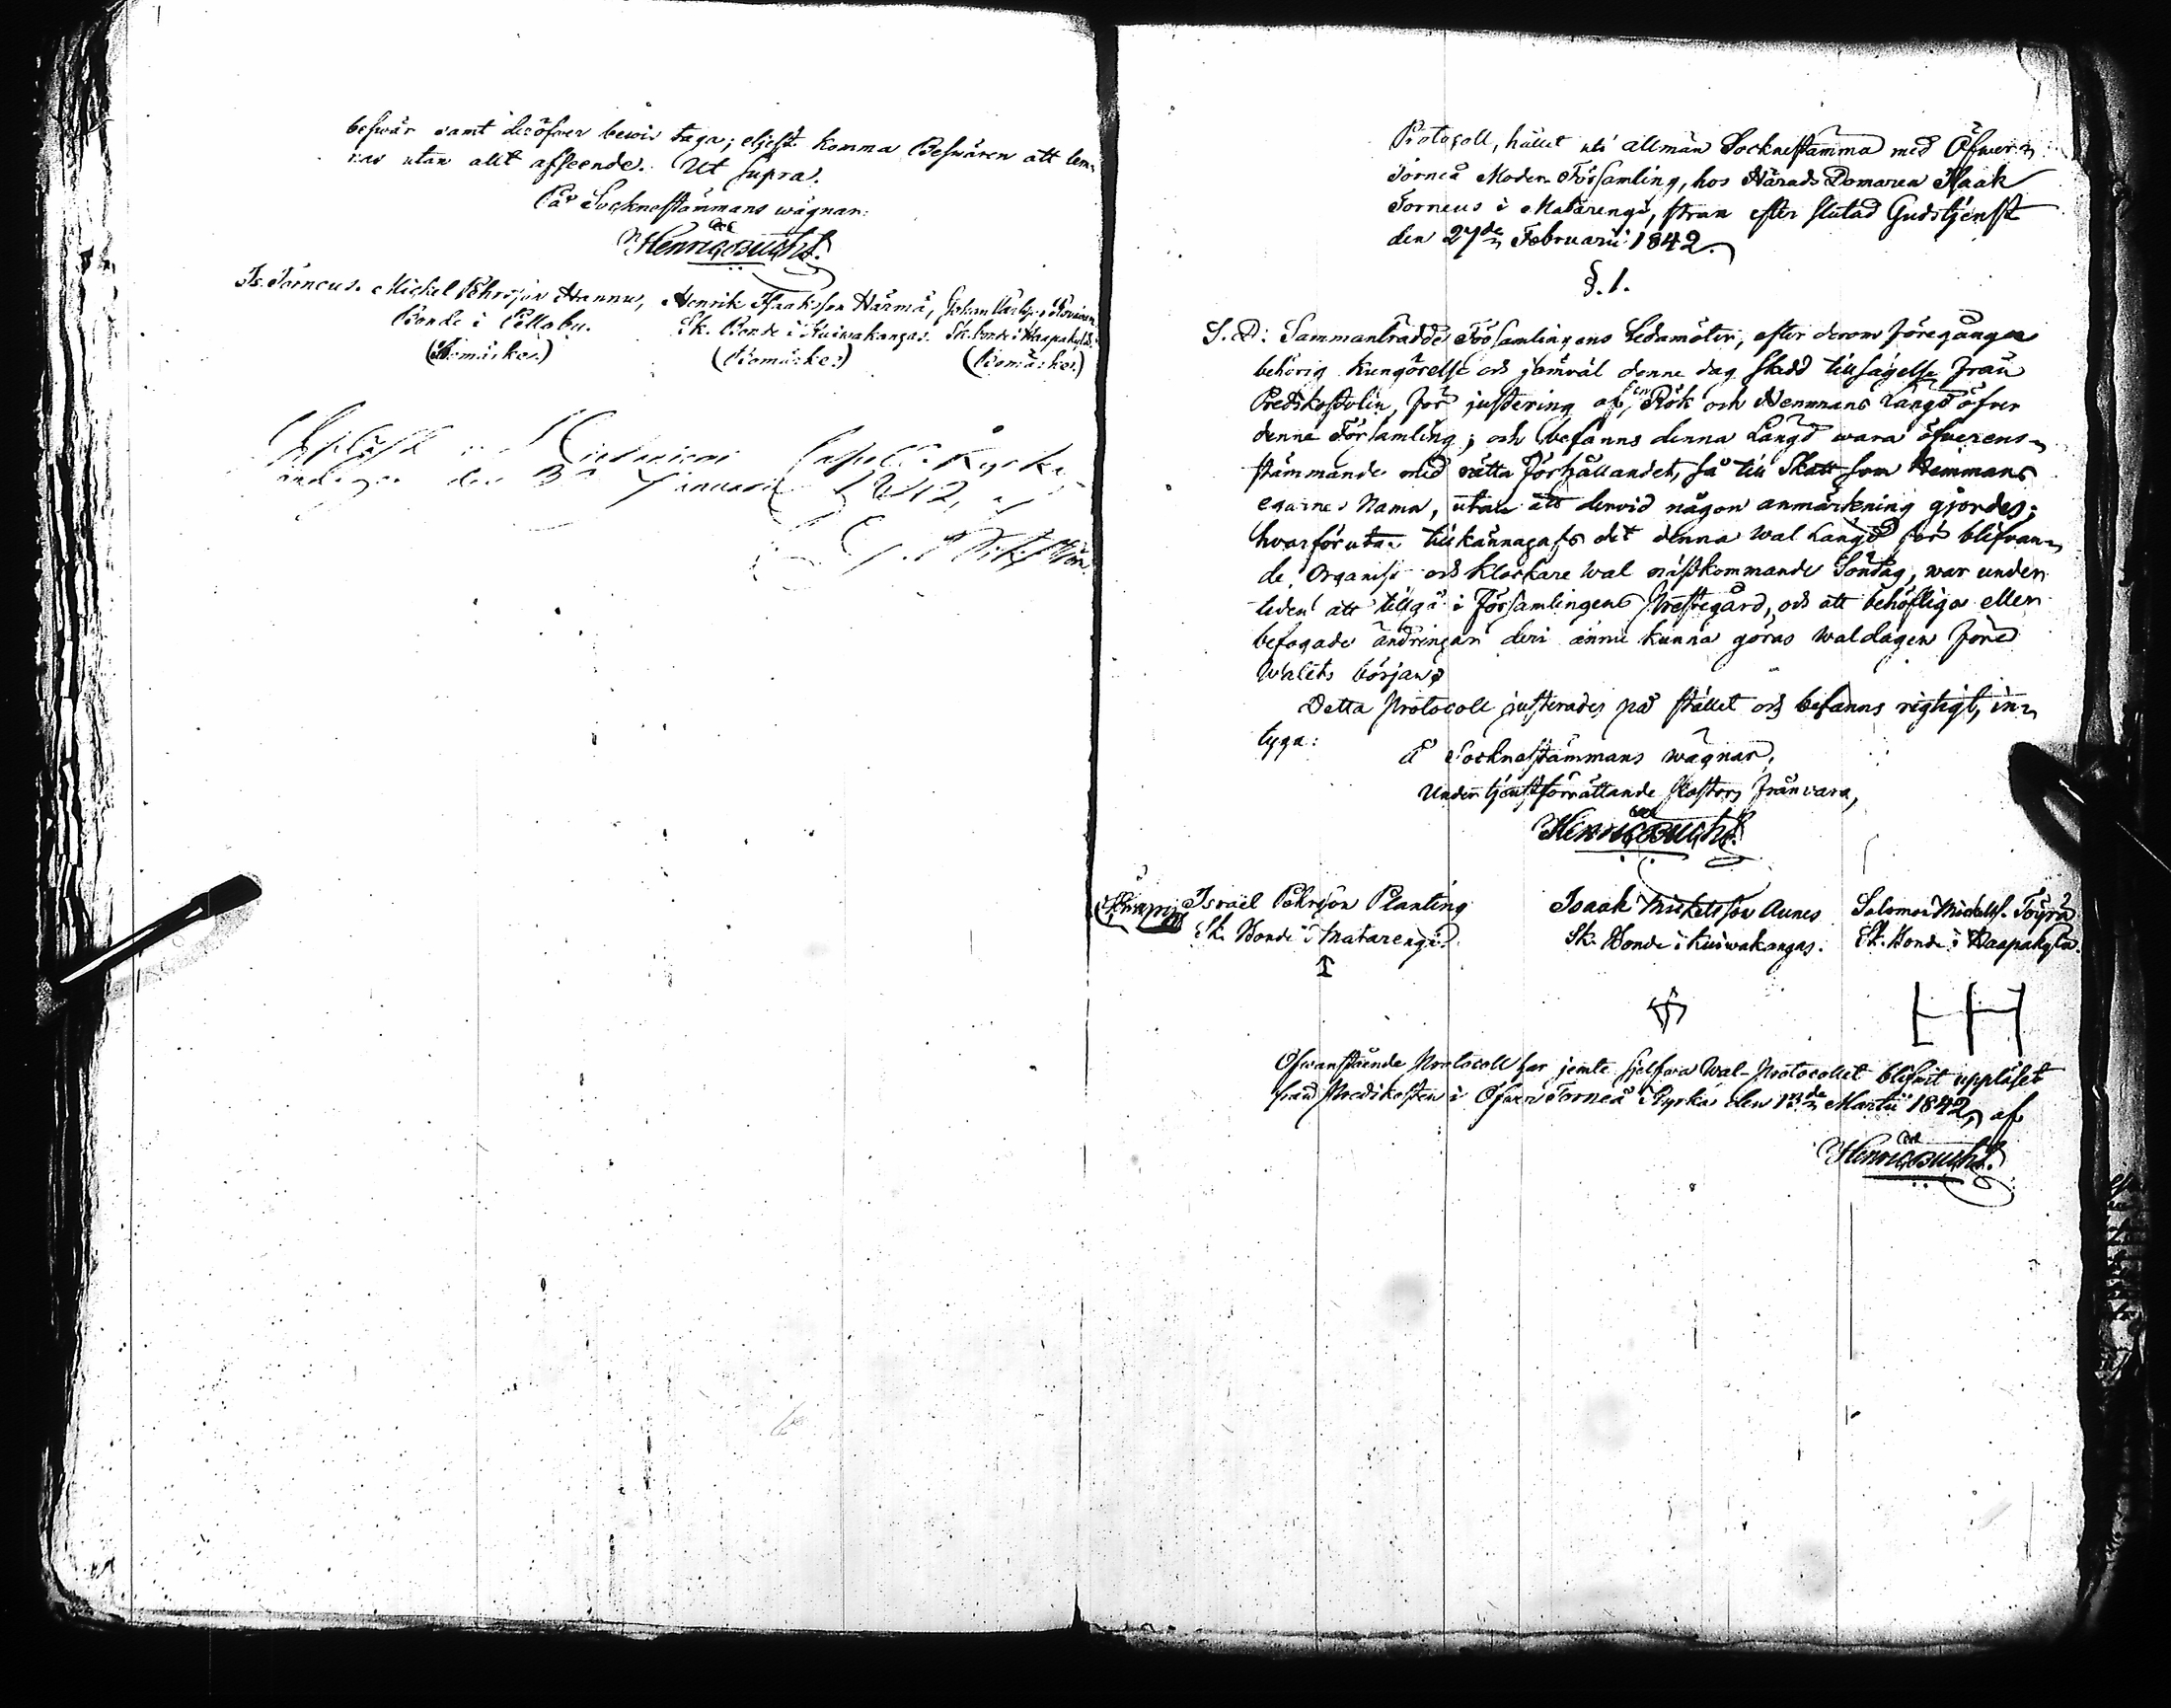 beswär samt deröfver bewis taga; eljest komma Beswären att lem-
nas utan allt afseende. Ut supra.
På Socknestämmans wägnar:
Henric Bucht.
Is. Törneus. Mickel Pehrsson Hannu, Henrik Isaksson Härmä, Johan
Bonde i Pello by. Sk. Bonde i Kuiwakangas. Sk. bonde i Haapakylä.
(Bomärke.) (Bomärke.) (Bomärke.)
Uppläst Capell Kyrka
den 3 Januari 1842, af
Protocoll, hållet uti allmän Socknestämma med Öfwer
Torneå Moder Församling, hos Härads Domaren Isaak
Torneus i Matarengi, straxt efter slutad Gudstjenst
den 27de Februarii 1842.
§. 1.
S. D: Sammanträdde Församlingens Ledamöter, efter derom föregången
behörig kungörelse och jämväl denne dag skedd tillsägelse från
Predikostolen, för justering af en Rök och Hemmans Längd öfver
denne Församling; och befanns denna Längd wara öfverens-
stämmande med rätta förhållandet, så till Skatt som Hemmans
egarnes Namn, utan att dervid någon anmärkning gjordes;
hvarförutan tillkännagafs det denna Wal Längd för blifvan-
de Organist och Klockare wal nästkommande Söndag, war under
tiden att tillgå i Församlingens Prestegård, och att behöfliga eller
befogade ändringar deri ännu kunna göras waldagen före
Walets början.
Detta Protocoll justerades på stället och befanns rigtigt, in-
tyga:
å Socknestämmans wägnar,
Under tjenstförrättande Pastors frånvara,
Henric Bucht.
Israel Pehrsson Planting Isaak Mickelsson Aunes Salomon Mickelss. Töyrä
Sk. Bonde i Matarengi. Sk. Bonde i Kuiwakangas. Sk. Bonde i Haapakylä.
Ofwanstående Protocoll har jemte sjelfva Wal-Protocollet blifwit uppläset
från Predikostolen i Öfwer Torneå Kyrka den 13de Martii 1842, af
Henric Bucht.